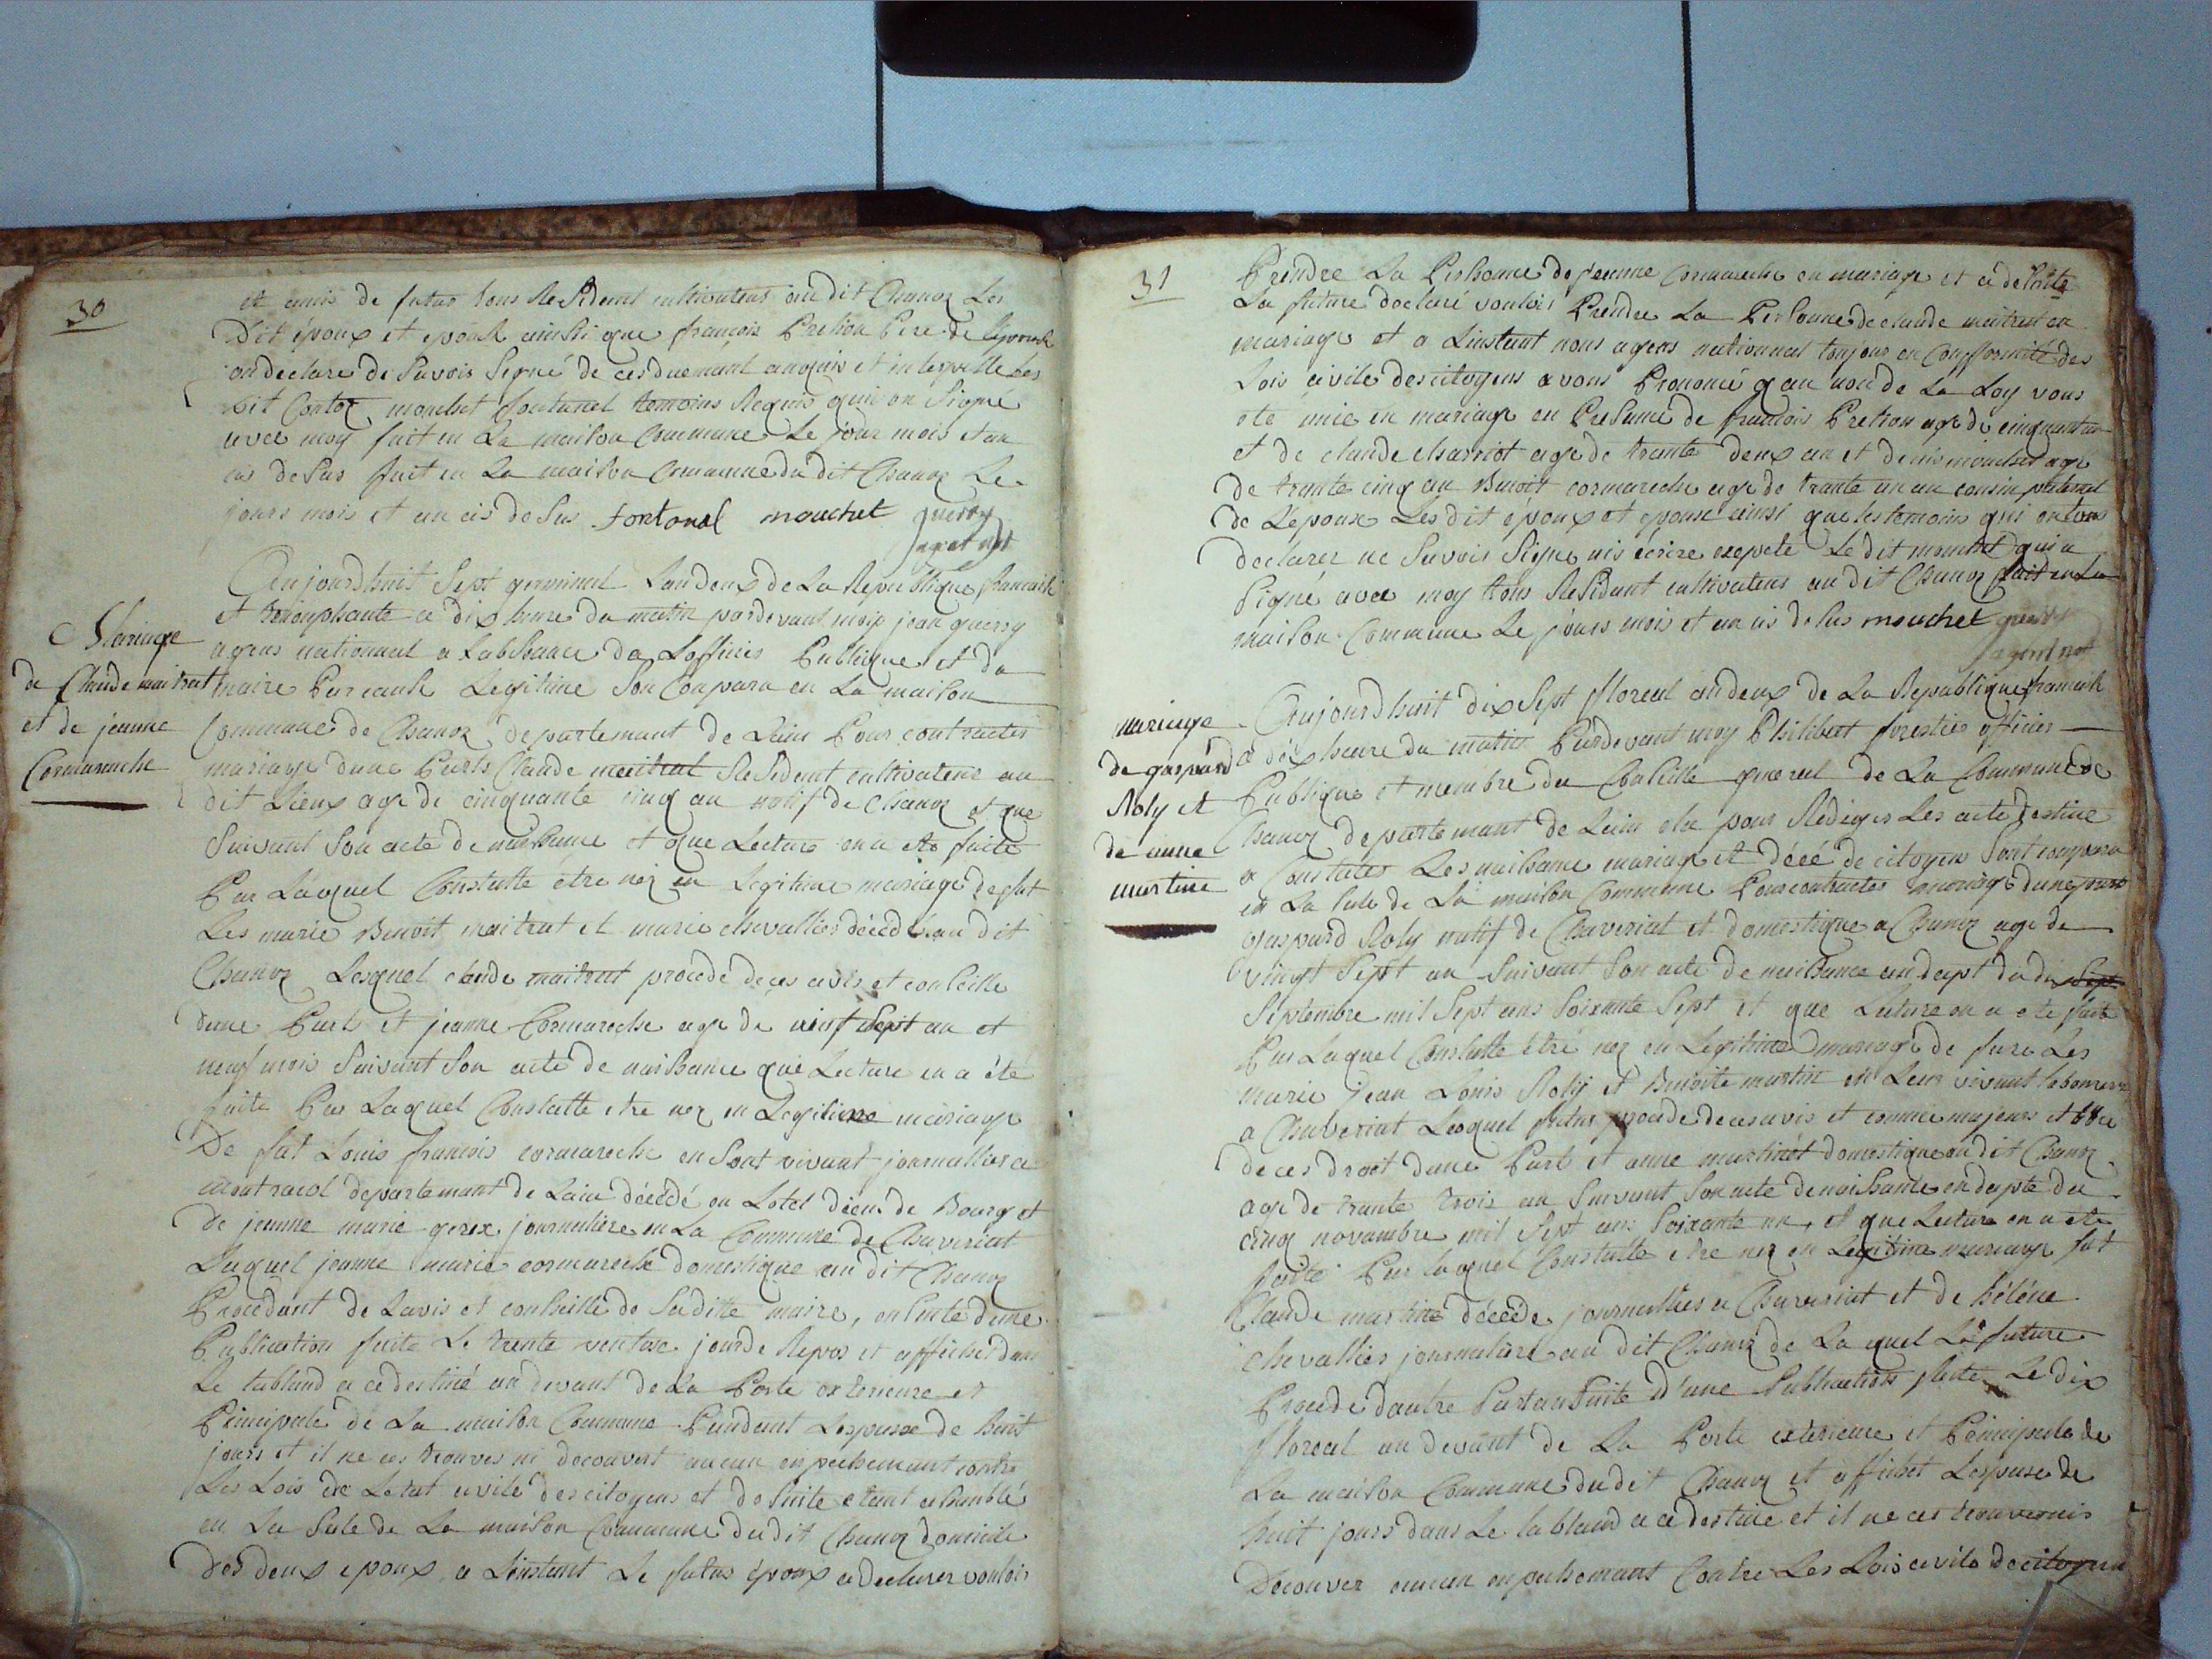 30
et amis de futur tous Residant cultivateurs audit Chanoz Les
Dit époux et epouse ainssi que françois Pretion Pere de lepouse
on declare de Savois Signé de ces duemant anquis et interpelle Les
dit mouchet fontanel temoins Requis qui on Signé
avec moy fait en La maison Commune Le jour mois et an
cis de Sus fait en La maison Commune du dit Chanoz Le
jours mois et an cis de Sus fontanel mouchet guerry
agent nat
Mariage
de Claude maitrat
et de jeanne
Cormareche
Aujourdhuit Sept germinal Landeux de La Republique francaise
et trionphante a dix heure du matin pardevant moy jean guerry
agens nationnal a Labssance de Loffisies Publique et du
maire Par cause Legitime Son Conparu en La maison
Commune de Chanoz departemant de Lain Pour contractes
mariage dune Parts Claude maitrat Residant cultivateur au
dit Lieux age de cinquante cinq an natif de Chanoz et que
Suivant Son acte de naissance et que Lecture en a ete faite
Par Laquel Constatte etre nez en Legitime mariage de fut
Les marie Benoit maitrat et marie chevallies décedé au dit
Chanoz Lesquel claude maitrat procede de ces avis et conseille
dune Part et jeanne Cormareche age de vint Sept an et
neuf mois Suivant Son acte de naissance que Lecture en a été
faite Par Laquel Constatte etre nez en Legitime mariage
De fut Louis francois cormareche en Sont vivant journallies a
montracol departemant de Lain décédé en Lotel dieu de Bourg et
de jeanne marie gerex journaliere en La Commune de Chaveriat
Laquel jeanne marie cormareche domestique au dit Chanoz
Procedant de Lavis et conseille de Saditte maire, en Suite dune
Publication faite Le trente ventose jour de Repos et affiches dans
Le tablaud a ce destiné au devant de La Porte exterieure et
Principale de La maison Commune Pandant Lespasse de huit
jours et il ne ces trouves ni decouvert aucun enpechemant contre
Les Lois de Letat civile des citoyens et de Suite etant assamblé
en La Sale de La maison Commune du dit Chanoz domicile
des deux epoux a Linstant Le futus époux a declarer voulois
31
Prendre La Personne de jeanne Cormareche en mariage et a de Suite
La future declaré voulois Prendre La Personne de claude maitrat en
mariage et a Linstant nous agens nationnal toujour en Confformité des
Lois civile des citoyens avons Prononcé quau non de La Loy vous
ete unie en mariage en Presance de francois Pretion age de cinquante an
et de claude charriot age de trante deux an et denis mouchet age
de trante cinq an Benoit cormareche age de trante un an cousin paternel
de Lepouse Les dit epoux et epouse ainsi que les temoins qui on tous
declarer ne Savois Signe nis écrire exepeté Le dit mouchet qui a
Signé avec moy tous Residant cultivateurs au dit Chanoz fait en La
maison Commune Le jours mois et an cis de Sus mouchet guerry
agent nat
mariage
de gaspard
Roly et
de anne
martine
Aujourdhuit dix Sept floreal an deux de La Republique francaise
a dix heure du matin Pardevant moy Philibert foresties officies
Publique et membre du Conseille general de La Commune de
Chanoz departemant de Lain elu pour Redigés Les acte destine
a Constates Les naissance mariage et décé de citoyens Sont conparu
en La Sale de La maison Commune Pour contractes mariage dune part
gaspard Roly natif de Chaveriat et domestique a Chanoz age de
vingt Sept an Suivant Son acte de naissance an dapt du dix Sept
Septembre mil Sept cens Soixante Sept et que Lecture en a ete faite
Par Laquel Constatte etre nez en Legitime mariage de fure Les
marie jean Louis Roly et Benoite martin en Leur vivant laboureur
a Chaveriat Lesquel futur procede de ces avis et comme majeurs et
de ces droit dune Part et anne martinet domestique au dit Chanoz
age de trante trois an Suivant Son acte de naissante en dapte du
cinq novambre mil Sept cens Soixante un, et que Lecture en a ete
faite Par laquel Constatte etre nez en Legitime mariage fut
Claude martine décéde journallies a Chaveriat et de hélêne
chevallies journaliere au dit Chanoz de La quel La future
Procede dautre Part an Suite d'une Publication faite Le dix
floreal au devant de La Porte exterieure et Principale de
La maison Commune du dit Chanoz et affichet Lespasse de
huit jours dans Le tablaud a ce destine et il ne ces trouver nis
Decouver aucun enpechemant Contre Les Lois civile de citoyens